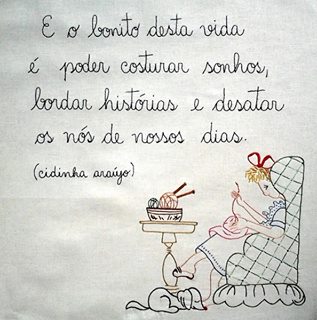 E o bonito desta vida
é poder costurar sonhos,
bordar histórias e desatar
os nós de nossos dias.
(cidinha araújo)